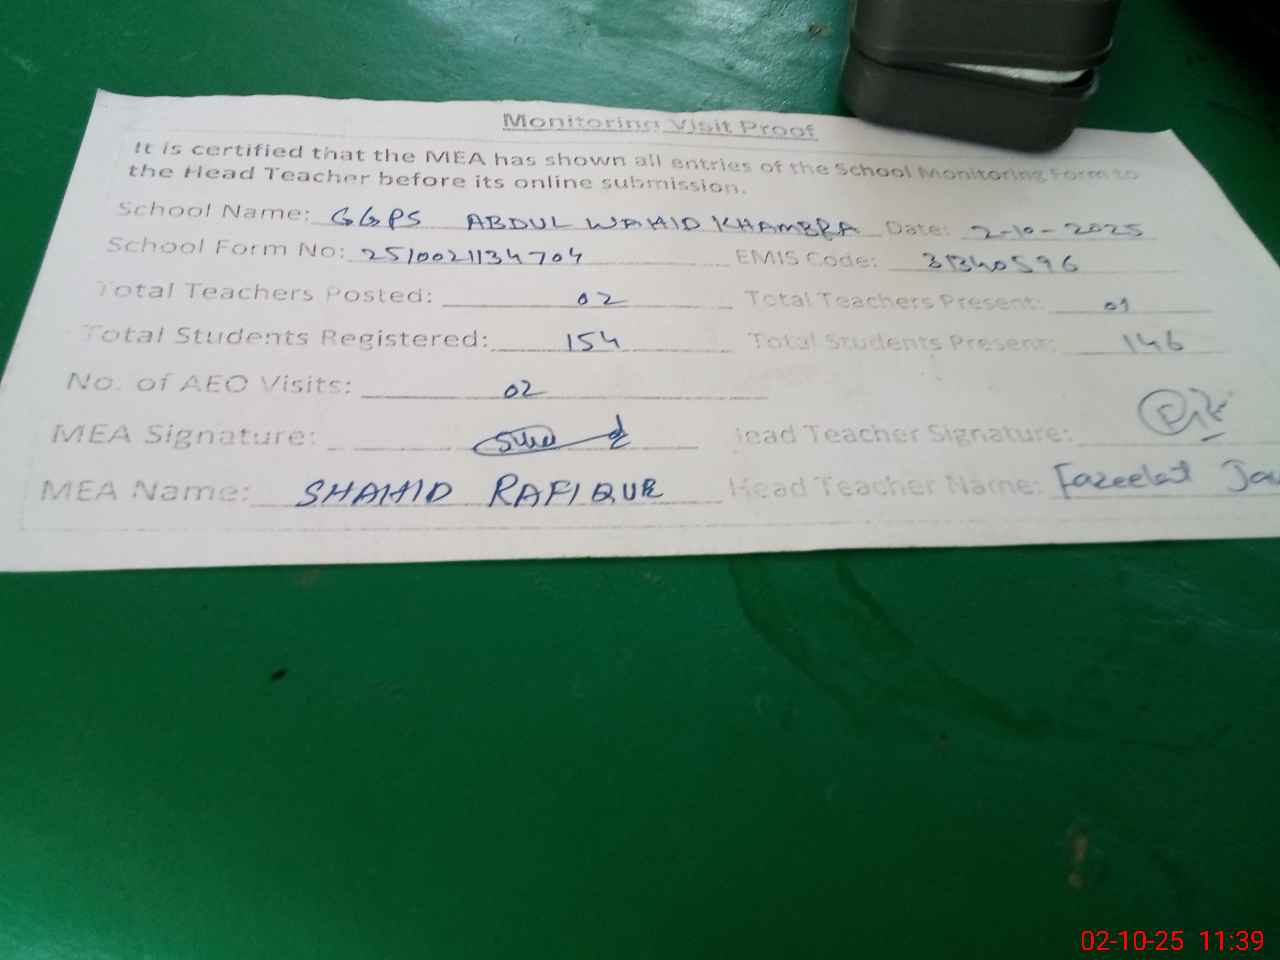 Monitoring Visit Proof
It is certified that the MEA has shown all entries of the School Monitoring Form to
the Head Teacher before its online submission.
School Name: GGPS ABDUL WAHID KHAMBRA Date: 2-10-2025
School Form No: 2510021134704 EMIS Code: 31340596
Total Teachers Posted: 02 Total Teachers Present: 01
Total Students Registered: 154 Total Students Present: 146
No. of AEO Visits: 02
MEA Signature: Head Teacher Signature:
MEA Name: SHAHID RAFIQUE Head Teacher Name: Fazeelat
02-10-25 11:39